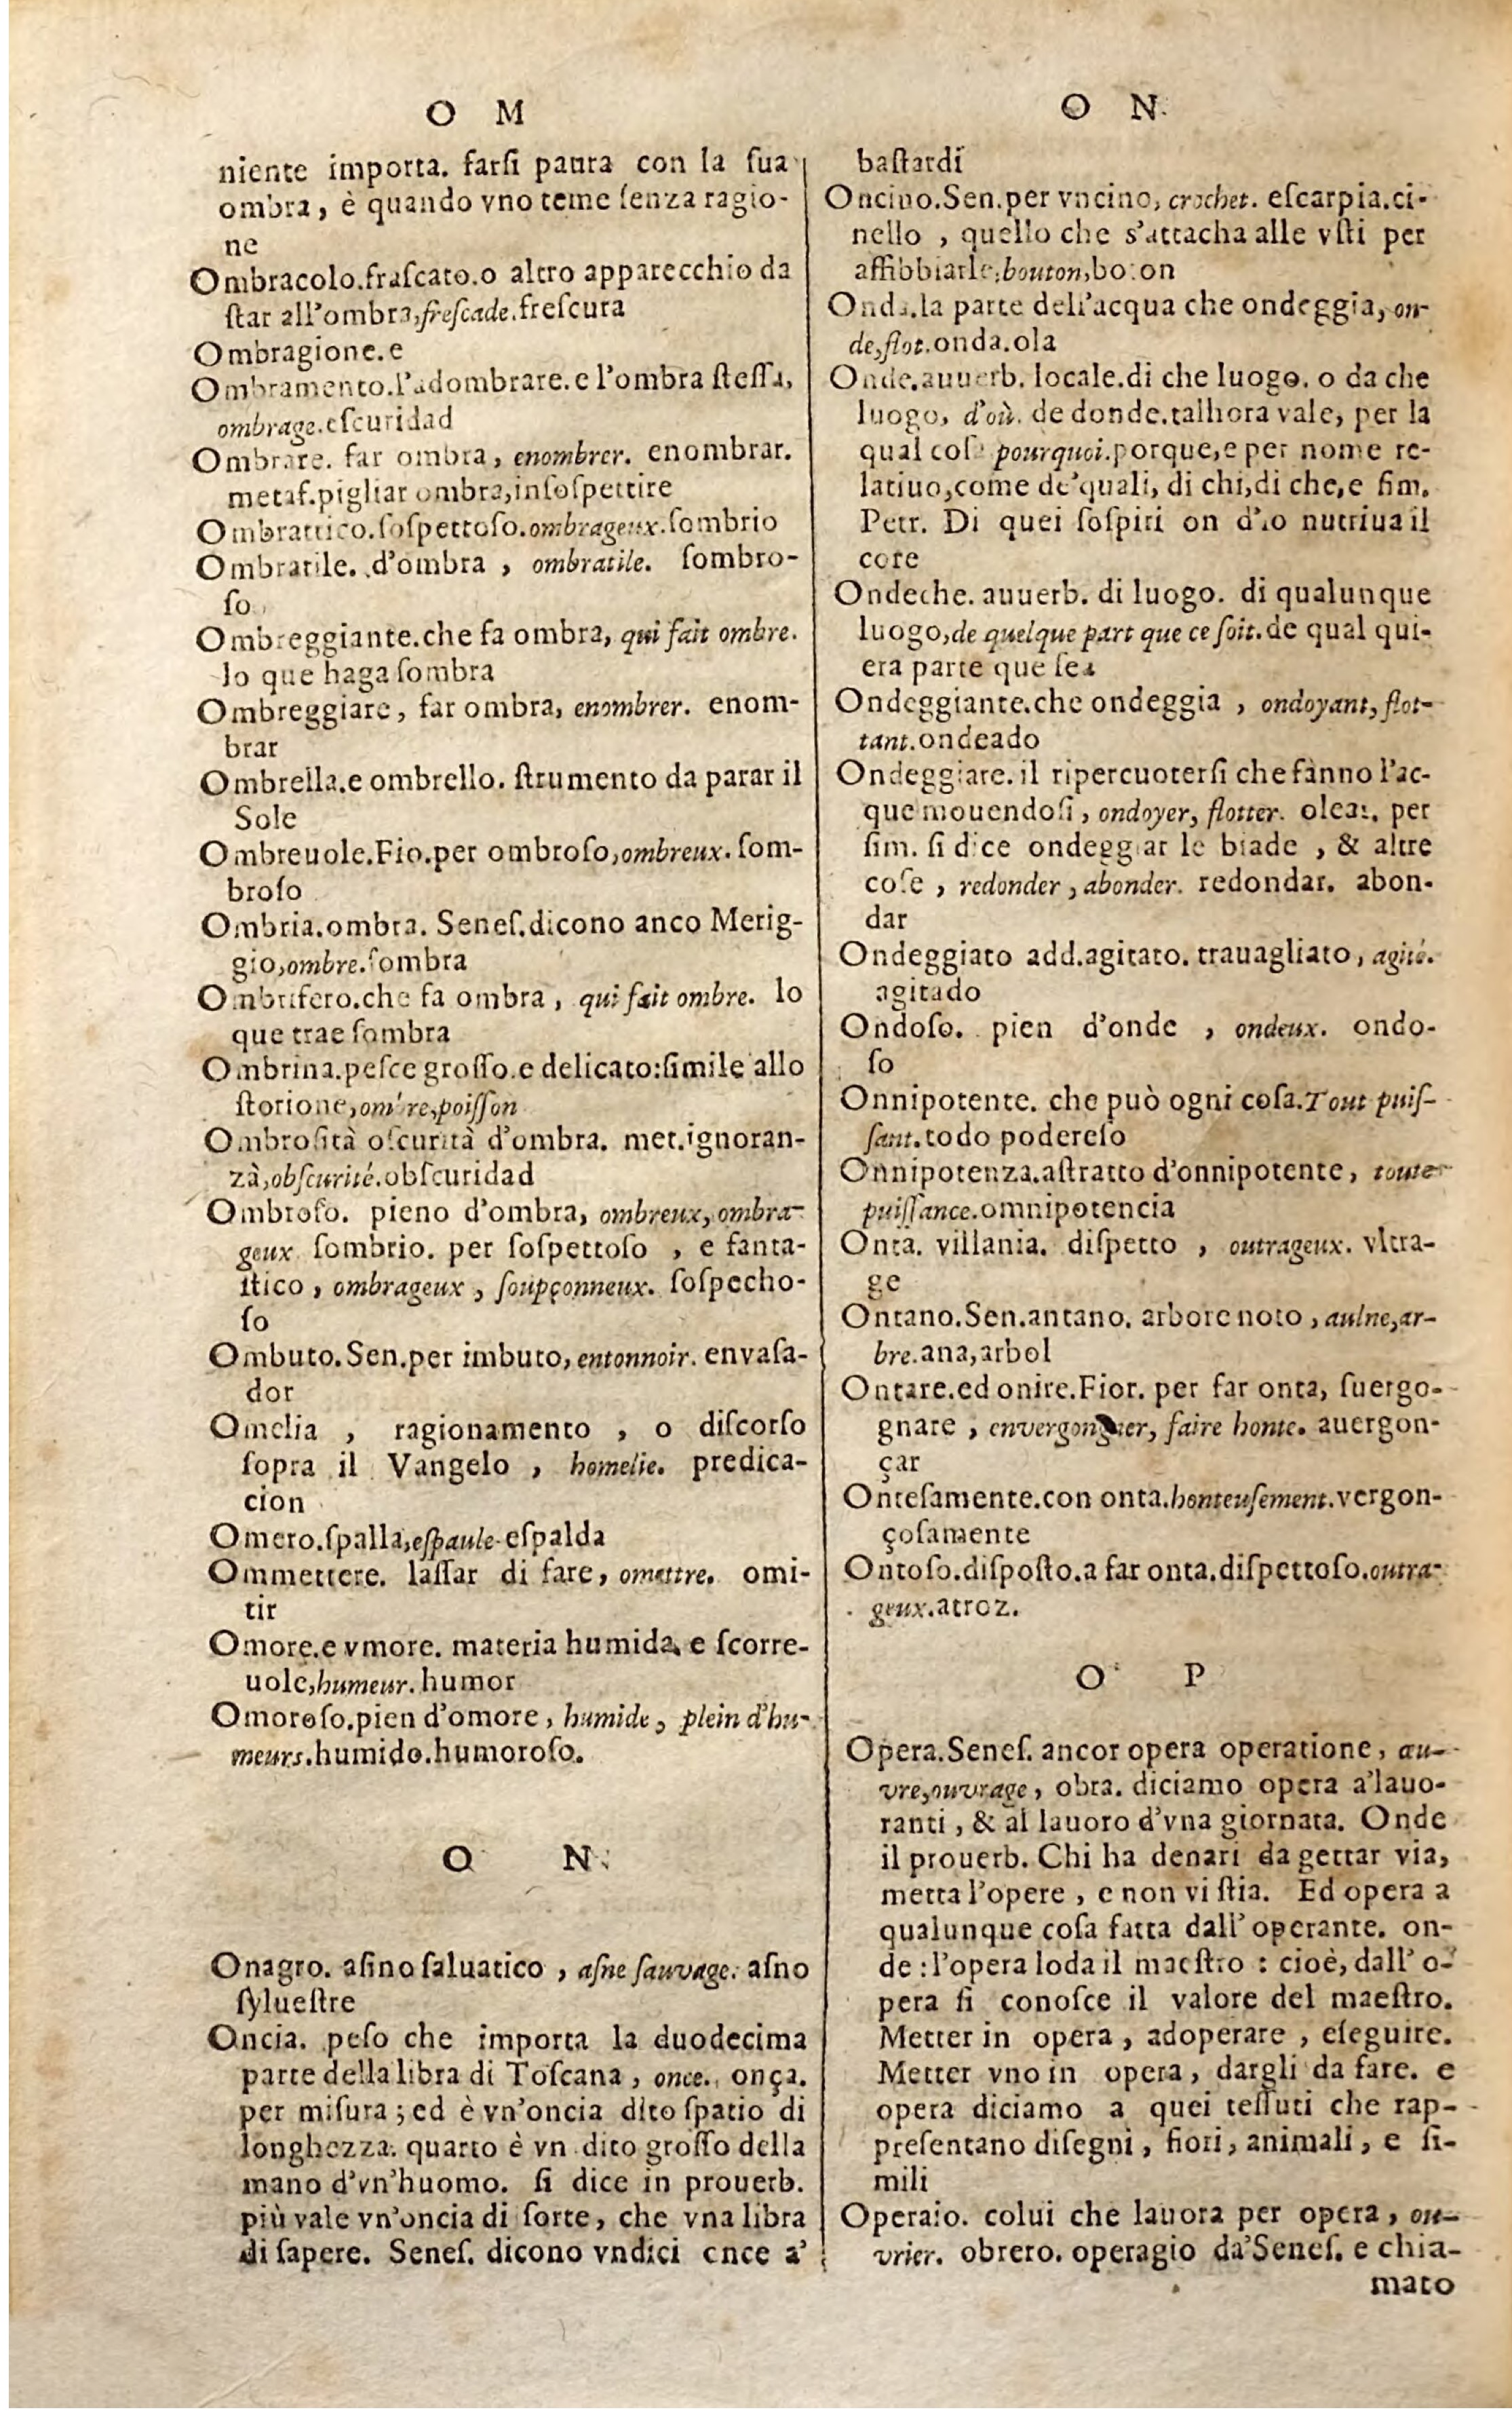 O M
niente importa. farſi paura con la ſua
ombra, è quando vno teme ſenza ragio-
ne
Ombracolo.fraſcato.o altro apparecchio da
ſtar all'ombra,freſcade.freſcura
Ombragione.e
Ombramento.l'adombrare.e l'ombra ſteſſa,
ombrage.eſcuridad
Ombrare. far ombra, enombrer. enombrar.
metaf.pigliar ombra,inſoſpettire
Ombrattico.ſoſpettoſo.ombrageux.ſombrio
Ombratile. d'ombra, ombratile. ſombro-
ſo
Ombreggiante.che fa ombra, qui fait ombre.
lo que haga ſombra
Ombreggiare, far ombra, enombrer. enom-
brar
Ombrella.e ombrello. ſtrumento da parar il
Sole
Ombreuole.Fio.per ombroſo,ombreux. ſom-
broſo
Ombria.ombra. Seneſ.dicono anco Merig-
gio,ombre.ſombra
Ombrifero.che fa ombra, qui fait ombre. lo
que trae ſombra
Ombrina.peſce groſſo.e delicato:ſimile allo
ſtorione,ombre,poiſſon
Ombroſità oſcurità d'ombra. met.ignoran-
zà,obſcurité.obſcuridad
Ombroſo. pieno d'ombra, ombreux, ombra-
geux ſombrio. per ſoſpettoſo, e fanta-
ſtico, ombrageux, ſoupçonneux. ſoſpecho-
ſo
Ombuto.Sen.per imbuto, entonnoir. envaſa-
dor
Omelia, ragionamento, o diſcorſo
ſopra il Vangelo, homelie. predica-
cion
Omero.ſpalla,eſpaule.eſpalda
Ommettere. laſſar di fare, omettre. omi-
tir
Omore.e vmore. materia humida e ſcorre-
uole,humeur.humor
Omoroſo.pien d'omore, humide, plein d'hu-
meurs.humido.humoroſo.
O N
Onagro. aſino ſaluatico, aſne ſauvage. aſno
ſylueſtre
Oncia. peſo che importa la duodecima
parte della libra di Toſcana, once. onça.
per miſura; ed è vn'oncia dito ſpatio di
longhezza. quarto è vn dito groſſo della
mano d'vn'huomo. ſi dice in prouerb.
più vale vn'oncia di ſorte, che vna libra
di ſapere. Seneſ. dicono vndici once a'
O N
baſtardi
Oncino.Sen.per vncino, crochet. eſcarpia.ci-
nello, quello che s'attacha alle vſti per
affibbiarle,bouton,boton
Onda.la parte dell'acqua che ondeggia, on-
de,flot.onda.ola
Onde.auuerb. locale.di che luogo. o da che
luogo, d'où. de donde.talhora vale, per la
qual coſa pourquoi.porque,e per nome re-
latiuo,come de'quali, di chi,di che,e ſim.
Petr. Di quei ſoſpiri on d'io nutriua il
core
Ondeche. auuerb. di luogo. di qualunque
luogo,de quelque part que ce ſoit.de qual qui-
era parte que ſea
Ondeggiante.che ondeggia, ondoyant, flot-
tant.ondeado
Ondeggiare. il ripercuoterſi che fanno l'ac-
que mouendoſi, ondoyer, flotter. olear. per
ſim. ſi dice ondeggiar le biade, & altre
coſe, redonder, abonder. redondar. abon-
dar
Ondeggiato add.agitato. trauagliato, agité.
agitado
Ondoſo. pien d'onde, ondeux. ondo-
ſo
Onnipotente. che può ogni coſa.Tout puiſ-
ſant.todo podereſo
Onnipotenza.aſtratto d'onnipotente, toute
puiſſance.omnipotencia
Onta. villania. diſpetto, outrageux. vltra-
ge
Ontano.Sen.antano. arbore noto, aulne,ar-
bre.ana,arbol
Ontare.ed onire.Fior. per far onta, ſuergo-
gnare, envergongner, faire honte. auergon-
çar
Onteſamente.con onta.honteuſement.vergon-
çoſamente
Ontoſo.diſpoſto.a far onta.diſpettoſo.outra-
geux.atroz.
O P
Opera.Seneſ. ancor opera operatione, œu-
vre,ouvrage, obra. diciamo opera a'lauo-
ranti, & al lauoro d'vna giornata. Onde
il prouerb. Chi ha denari da gettar via,
metta l'opere, e non vi ſtia. Ed opera a
qualunque coſa fatta dall'operante. on-
de: l'opera loda il maeſtro: cioè, dall'o-
pera ſi conoſce il valore del maeſtro.
Metter in opera, adoperare, eſeguire.
Metter vno in opera, dargli da fare. e
opera diciamo a quei teſſuti che rap-
preſentano diſegni, fiori, animali, e ſi-
mili
Operaio. colui che lauora per opera, ou-
vrier. obrero. operagio da'Seneſ. e chia-
mato